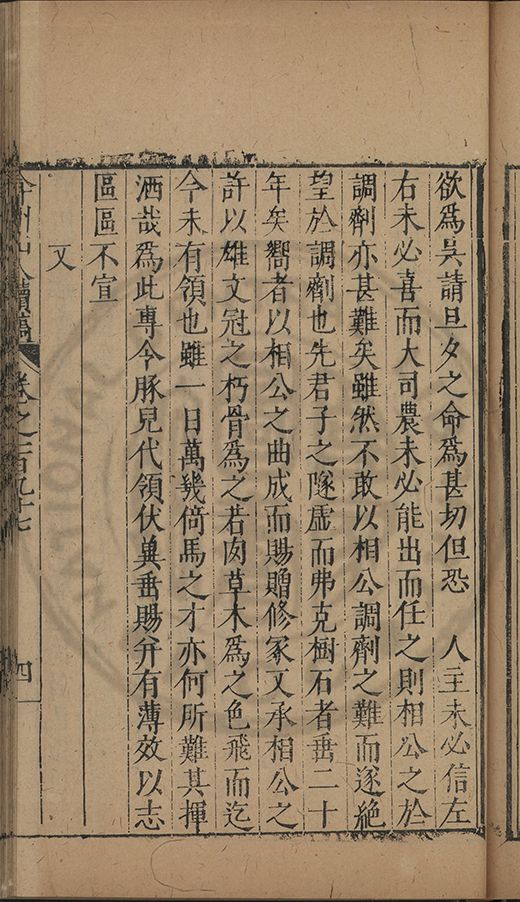 欲爲吳請旦夕之命爲甚切但恐　人主未必信左
右未必喜而大司農未必能出而任之則相公之於
調劑亦甚難矣雖然不敢以相公調劑之難而遂絶
望於調劑也先君子之隧虚而弗克樹石者垂二十
年矣嚮者以相公之曲成而賜贈修冢又承相公之
許以雄文冠之朽骨爲之若肉草木爲之色飛而迄
今未有領也雖一日萬幾倚馬之才亦何所難其揮
洒哉爲此專令豚兒代領伏兾垂賜并有薄效以志
區區不宣
又
弇州山人續稿
卷之一百九十七
四